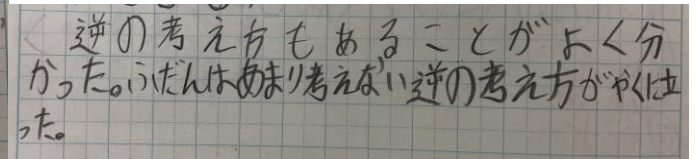 逆の考え方もあることがよく分
かった。ふだんはあまり考えない逆の考え方がやくに立
った。